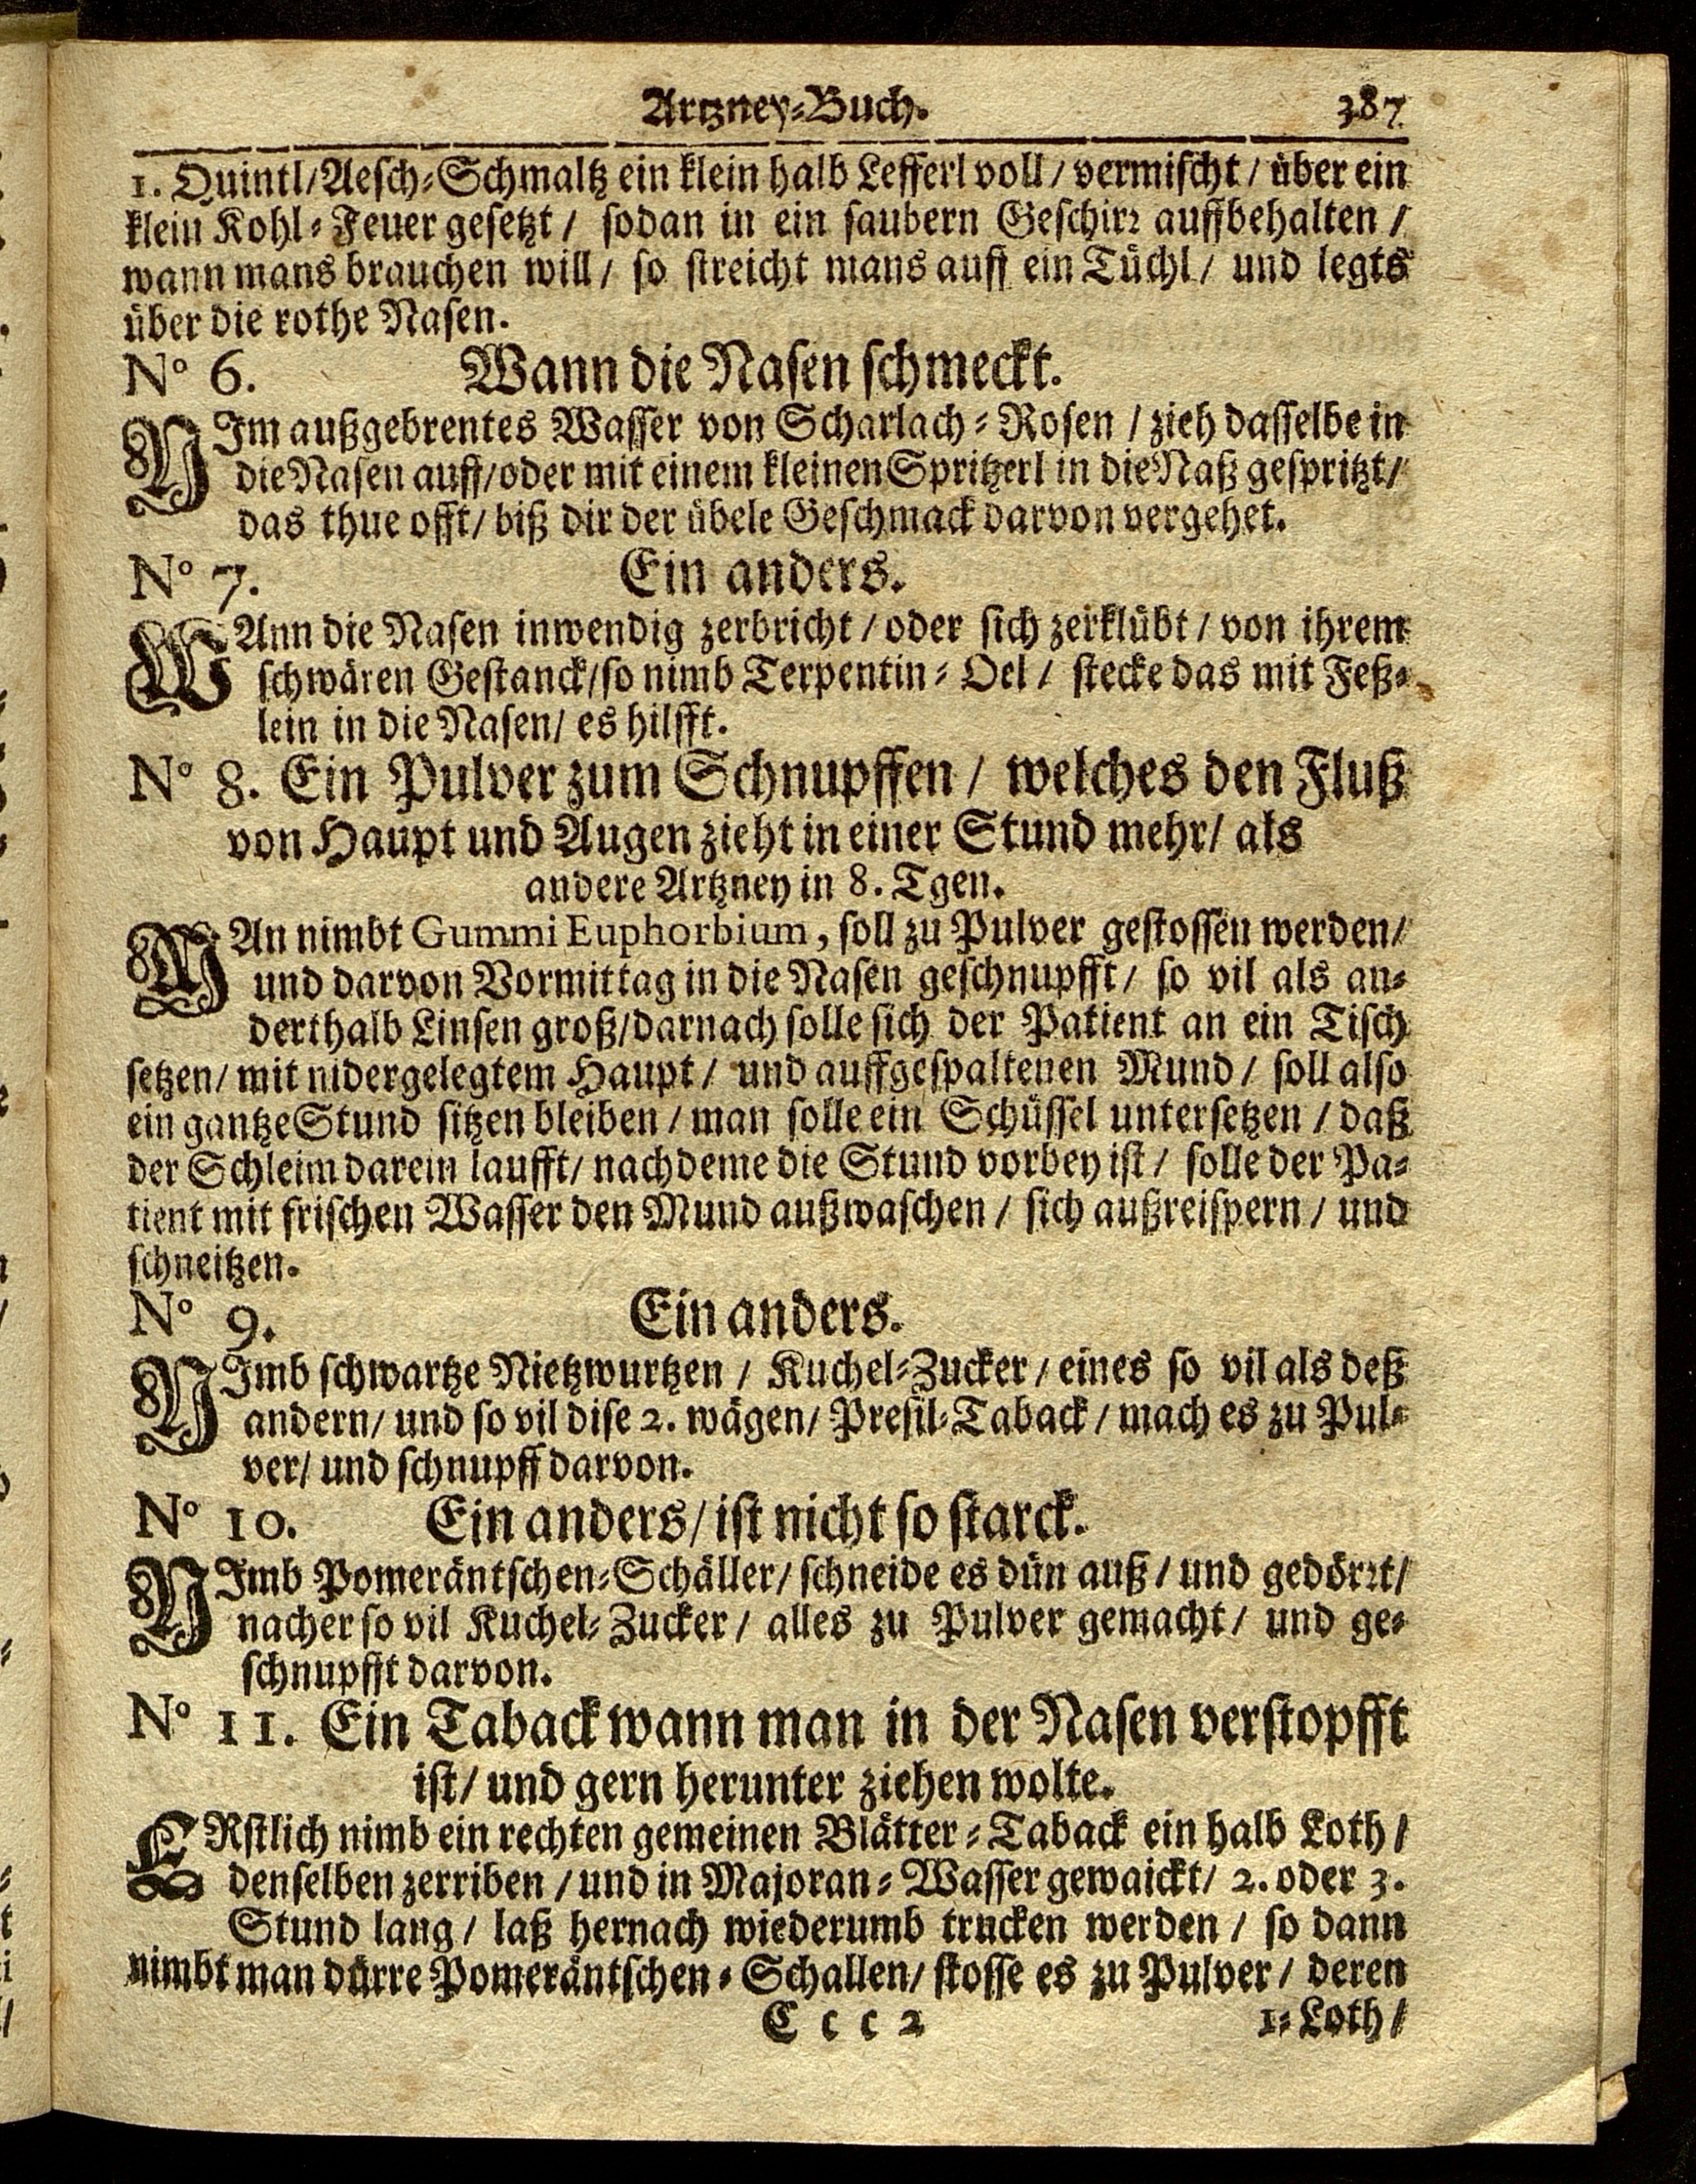 Artzney-Buch. 387
1. Quintl/Aesch-Schmaltz ein klein halb Lefferl voll/ vermischt/ über ein
klein Kohl-Feuer gesetzt/ sodan in ein saubern Geschirr auffbehalten/
wann mans brauchen will/ so streicht mans auff ein Tüchl/ und legts
über die rothe Nasen.
No 6. Wann die Nasen schmeckt.
NIm außgebrentes Wasser von Scharlach-Rosen / zieh dasselbe in
die Nasen auff/oder mit einem kleinen Spritzerl in die Naß gespritzt/
das thue offt/ biß dir der übele Geschmack darvon vergehet.
No 7. Ein anders.
WAnn die Nasen inwendig zerbricht/ oder sich zerklübt/ von ihrem
schwären Gestanck/so nimb Terpentin-Oel/ stecke das mit Feß-
lein in die Nasen/ es hilfft.
No 8. Ein Pulver zum Schnupffen/ welches den Fluß
von Haupt und Augen zieht in einer Stund mehr/ als
andere Artzney in 8. Tgen.
MAn nimbt Gummi Euphorbium, soll zu Pulver gestossen werden/
und darvon Vormittag in die Nasen geschnupfft/ so vil als an-
derthalb Linsen groß/darnach solle sich der Patient an ein Tisch
setzen/ mit nidergelegtem Haupt/ und auffgespaltenen Mund/ soll also
ein gantze Stund sitzen bleiben/ man solle ein Schüssel untersetzen/ daß
der Schleim darein laufft/ nachdeme die Stund vorbey ist/ solle der Pa-
tient mit frischen Wasser den Mund außwaschen/ sich außreispern/ und
schneitzen.
No 9. Ein anders.
NImb schwartze Nietzwurtzen/ Kuchel-Zucker/ eines so vil als deß
andern/ und so vil dise 2. wägen/ Presil-Taback/ mach es zu Pul-
ver/ und schnupff darvon.
No 10. Ein anders/ ist nicht so starck.
NImb Pomeräntschen-Schäller/ schneide es dün auß/ und gedörrt/
nacher so vil Kuchel-Zucker/ alles zu Pulver gemacht/ und ge-
schnupfft darvon.
No 11. Ein Taback wann man in der Nasen verstopfft
ist/ und gern herunter ziehen wolte.
ERstlich nimb ein rechten gemeinen Blätter-Taback ein halb Loth/
denselben zerriben/ und in Majoran-Wasser gewaickt/ 2. oder 3.
Stund lang/ laß hernach wiederumb trucken werden/ so dann
nimbt man dürre Pomeräntschen-Schallen/ stosse es zu Pulver/ deren
C c c 2 1. Loth/